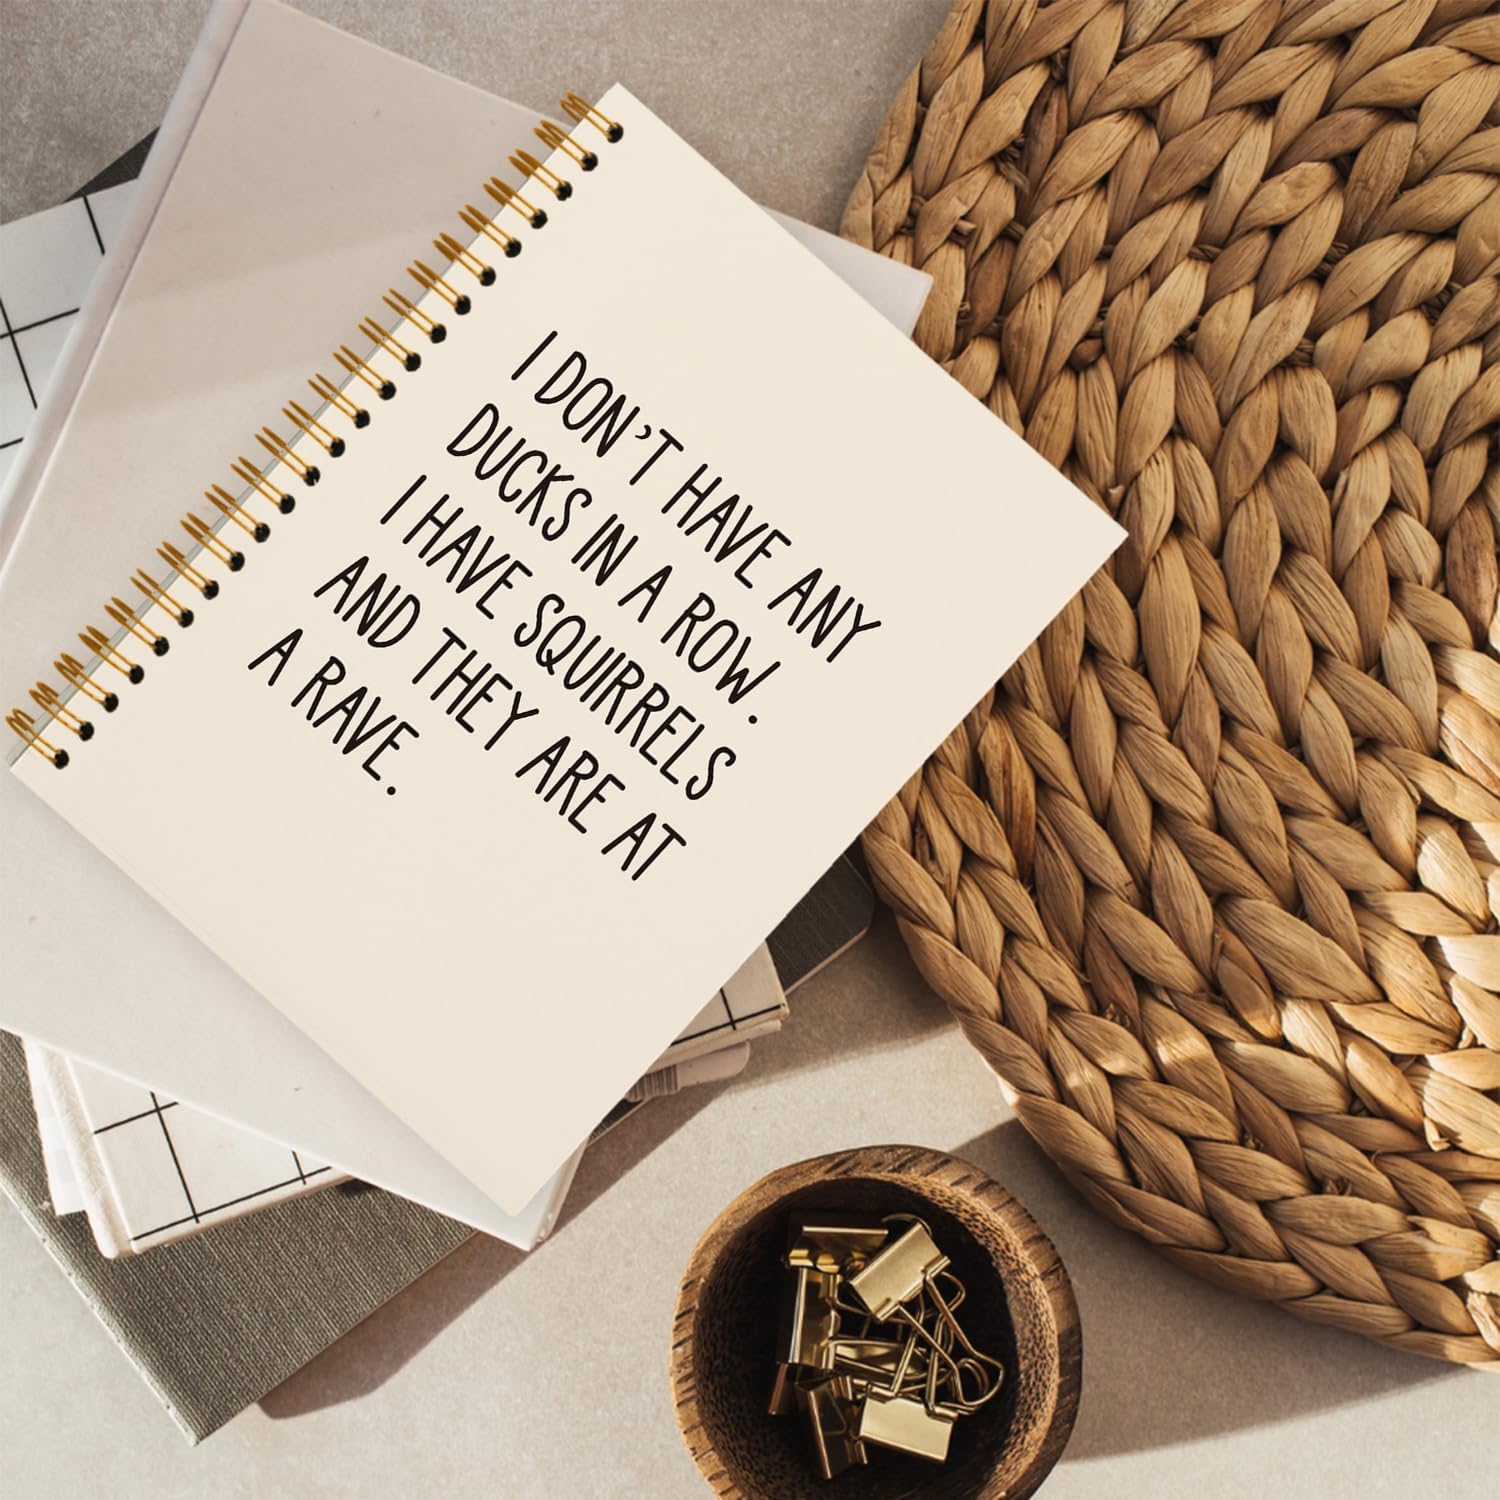 I DON'T HAVE ANY
DUCKS IN A ROW.
I HAVE SQUIRRELS
AND THEY ARE AT
A RAVE.